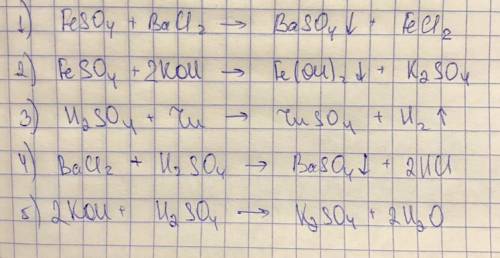 1) FeSO₄ + BaCl₂ → BaSO₄↓ + FeCl₂
2) FeSO₄ + 2KOH → Fe(OH)₂↓ + K₂SO₄
3) H₂SO₄ + Zn → ZnSO₄ + H₂↑
4) BaCl₂ + H₂SO₄ → BaSO₄↓ + 2HCl
5) 2KOH + H₂SO₄ → K₂SO₄ + 2H₂O